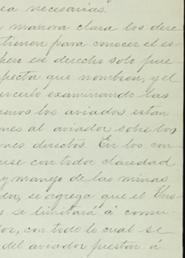 ea necesarias.
manera clara los dere
tienen para conocer el es
pero ese derecho solo pue
pecta que nombran, y el
circulo examinando las
emos los aviados estan
nes al aviador sobre los
nes directos. En los con
use con toda claridad
y manejo de las minas
do, se agrega que el
se limitará á comu
os, con todo lo cual se
del aviador prestar á